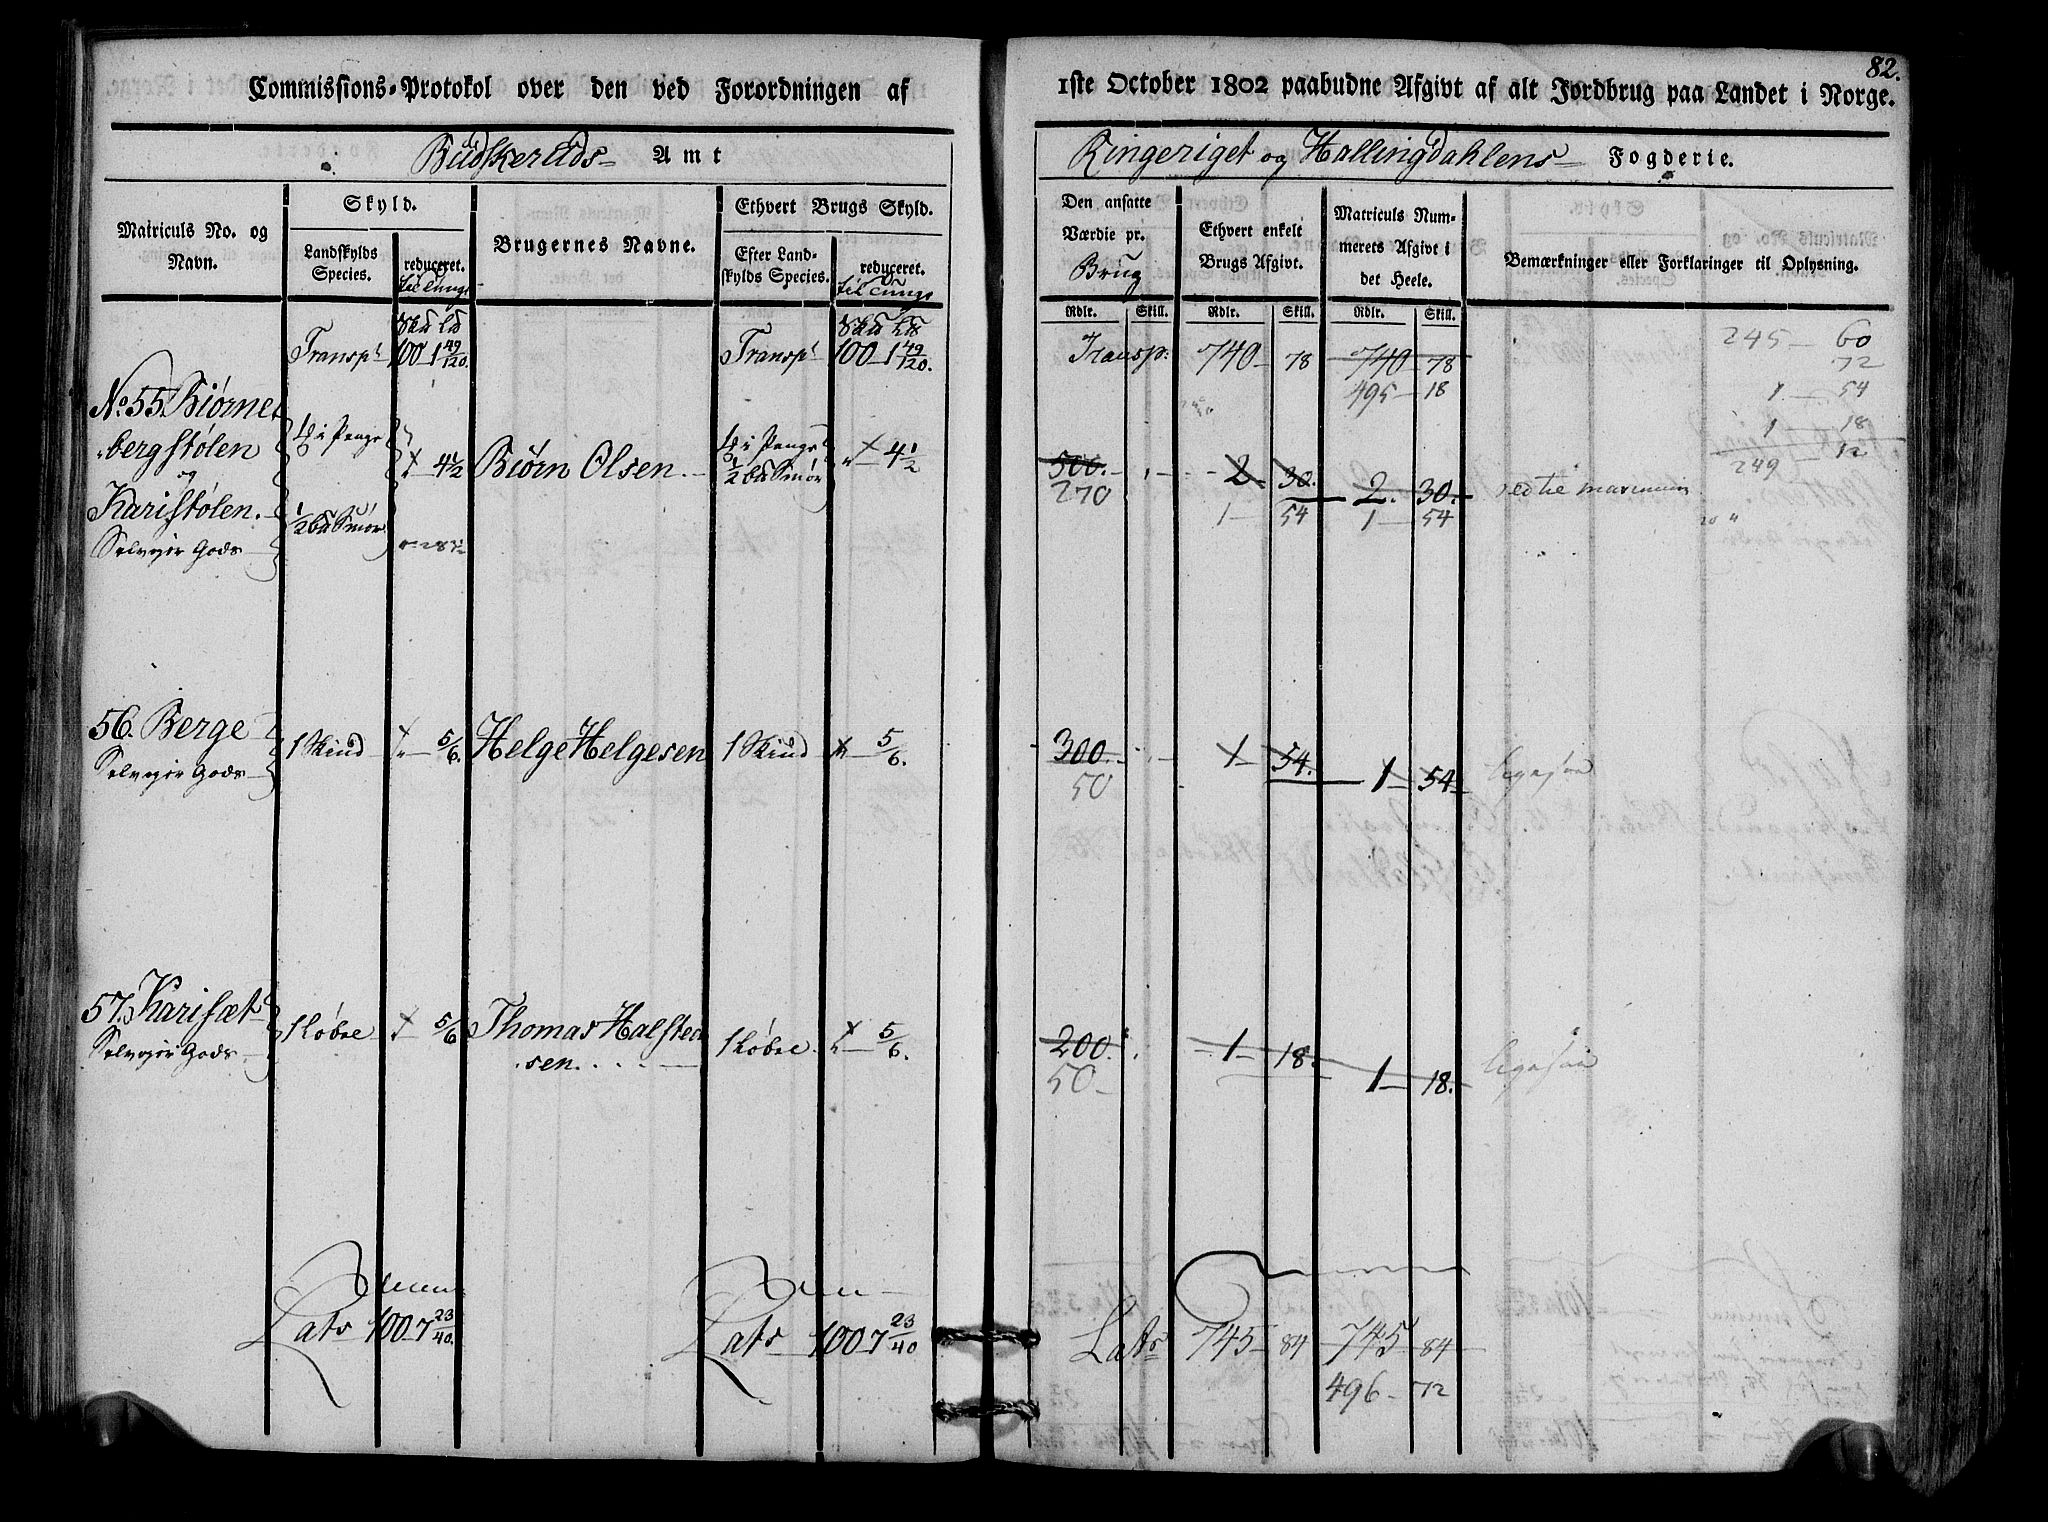 Commissions-Protokol over den ved Forordningen af
Budskeruds Amt
Matriculs No. og Navn.
Skyld.
Landskylds Species.
reduceret.
til Tunge
Brugernes Navne.
Ethvert Brugs Skyld.
Efter Landskylds Species.
reduceret.
til Tunge
Transpt 100 1 49/120. Transpt 100 1 49/120.
No. 55. Biørne-
bergstølen
og
Karistølen.
Selveyer Gods
i Penge
1/2
4 1/2
Biørn Olsen
i Penge
1/2
4 1/2
56. Berge
Selveyer Gods
1 Skind 5/6. Helge Helgesen 1 Skind 5/6.
57. Karisæt
Selveyer Gods
1 Løbse 5/6 Thomas Halsted-
sen.
1 Løbse 5/6.
Lats 100 7 23/40. Lats 100 7 23/40
82.
1ste October 1802 paabudne Afgivt af alt Jordbrug paa Landet i Norge.
Ringeriget og Hallingdahlens Fogderie.
Den ansatte Værdie pr.
Brug
Ethvert enkelt Brugs Afgivt.
Matriculs Nummerets Afgivt i det Heele.
Bemærkninger eller Forklaringer til Oplysning.
Rdlr. Skill. Rdlr. Skill. Rdlr. Skill.
Transp: 740 78 740 78
495 18
245 60
72
1 54
1 18
249 12
500. 2 30. 2. 30.
270 1 54 1 54
300. 1 54. 1 54
50
200. 1 18. 1 18.
50
Lats 745 84 745 84
496 72